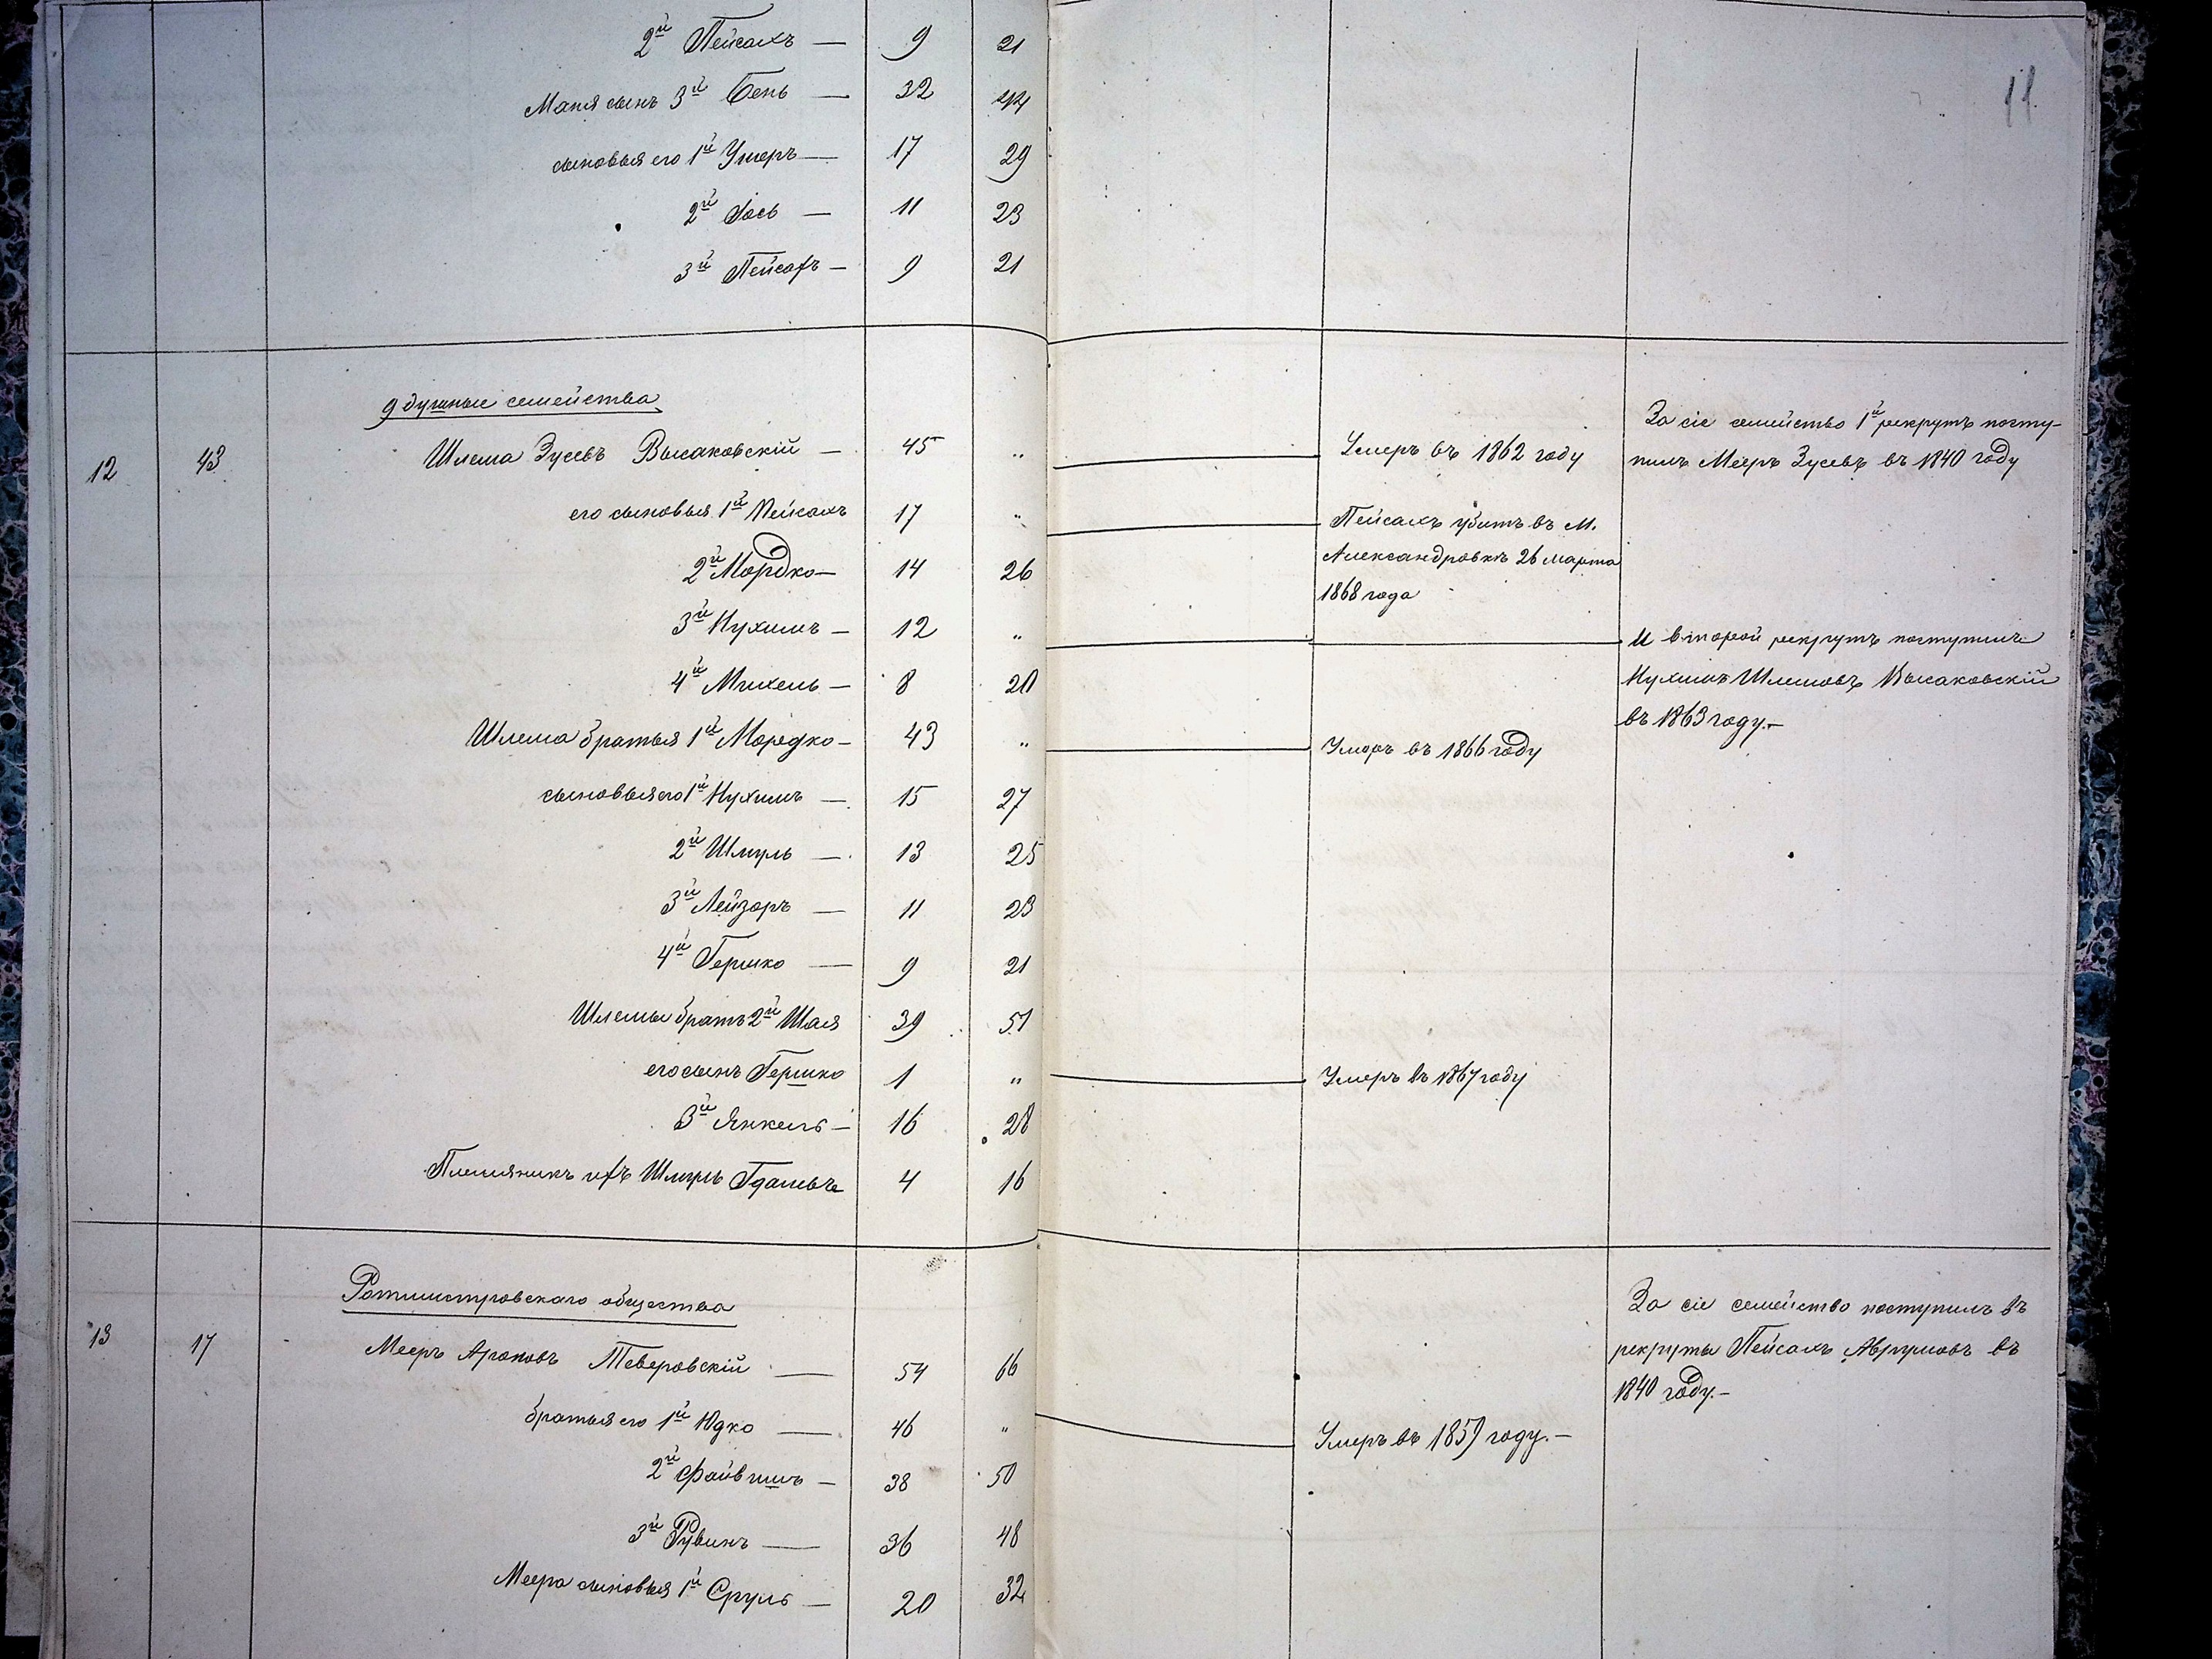 11
2й Пейсахъ — 9 21
Матя сынъ 3й Бень — 32 44
сыновья его 1й Умеръ — 17 29
2й Іось — 11 23
3й Пейсахъ — 9 21
9 душные семейства
12 43 Шлема Зусевъ Высаковскій — 45 „ Умеръ въ 1862 году
За сіе семейство 1й рекрутъ посту-
пилъ Мееръ Зусевъ въ 1840 году
его сыновья 1й Пейсахъ 17 „ Пейсахъ убитъ въ М.
Александровкѣ 26 марта
1868 года
2й Мордко — 14 26
3й Нухимъ — 12 „
И второй рекрутъ поступилъ
Нухимъ Шлемовъ Высаковскій
въ 1863 году. —
4й Михель — 8 20
Шлема братья 1й Мордко — 43 „ Умеръ въ 1866 году
сыновья его 1й Нухимъ — 15 27
2й Шмуль — 13 25
3й Лейзоръ — 11 23
4й Гершко — 9 21
Шлемы братъ 2й Шая 39 51
его сынъ Гершко 1 „ Умеръ въ 1867 году
3й Янкель — 16 28
Племяникъ ихъ Шмуль Гдалевъ 4 16
Ротмистровскаго общества
13 17 Мееръ Ароновъ Теверовскій — 54 66
За сіе семейство поступилъ въ
рекруты Пейсахъ Аврумовъ въ
1840 году. —
братья его 1й Юдко — 46 „ Умеръ въ 1859 году. —
2й Файвишъ — 38 50
3й Рувинъ — 36 48
Меера сыновья 1й Сруль — 20 32